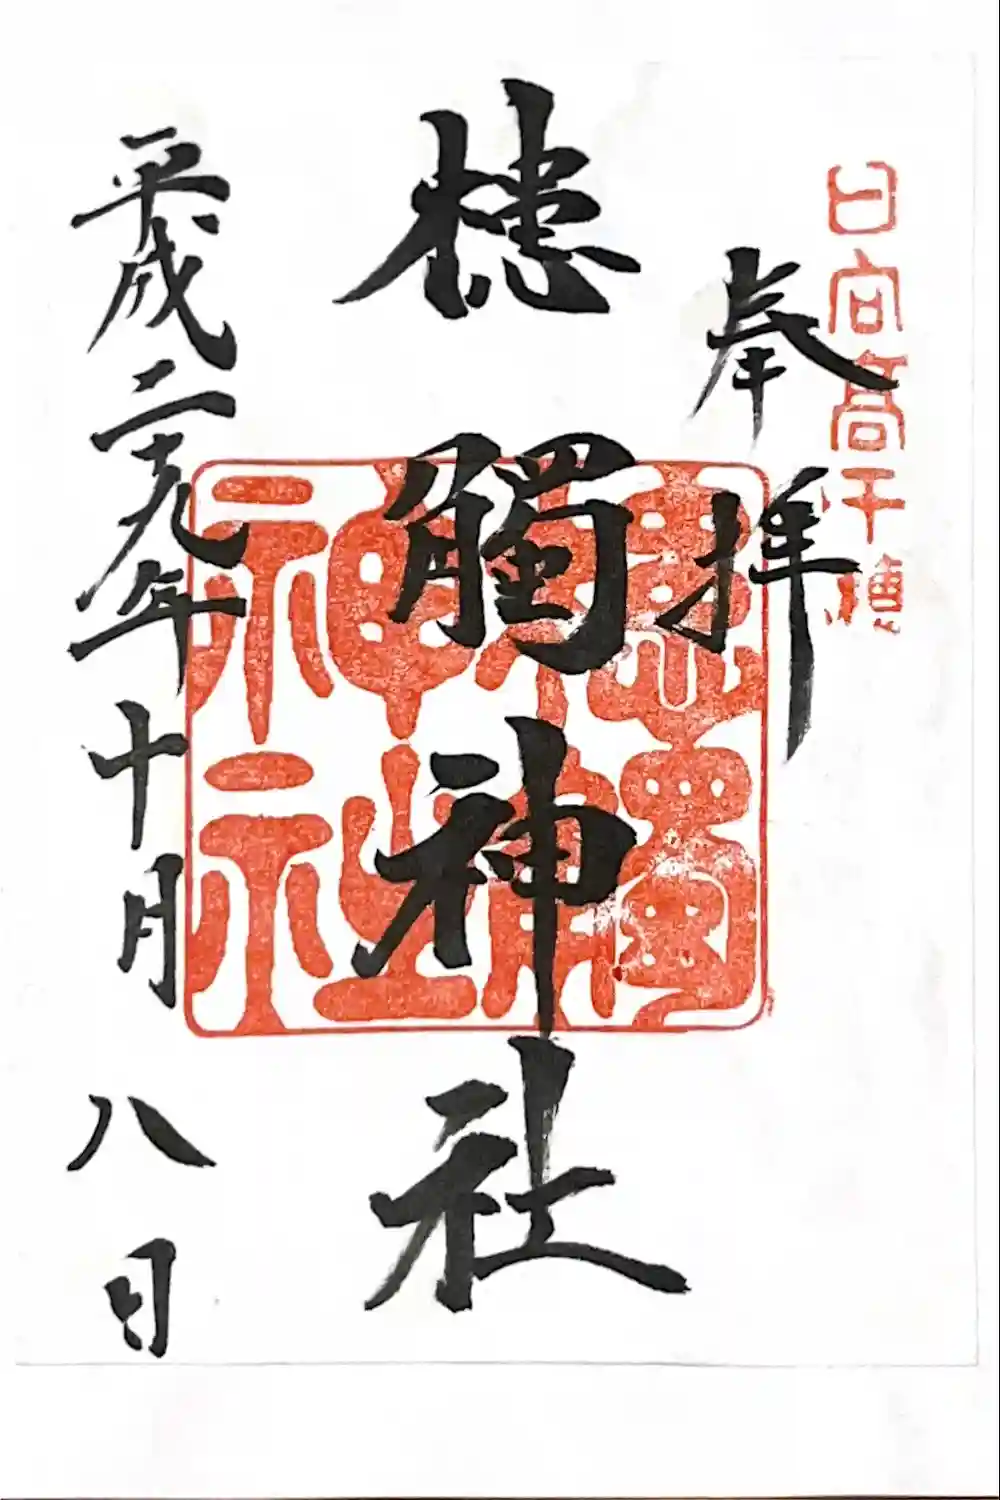 日向高千穂
奉拝
槵觸神社
槵觸神社
平成二十九年十月八日